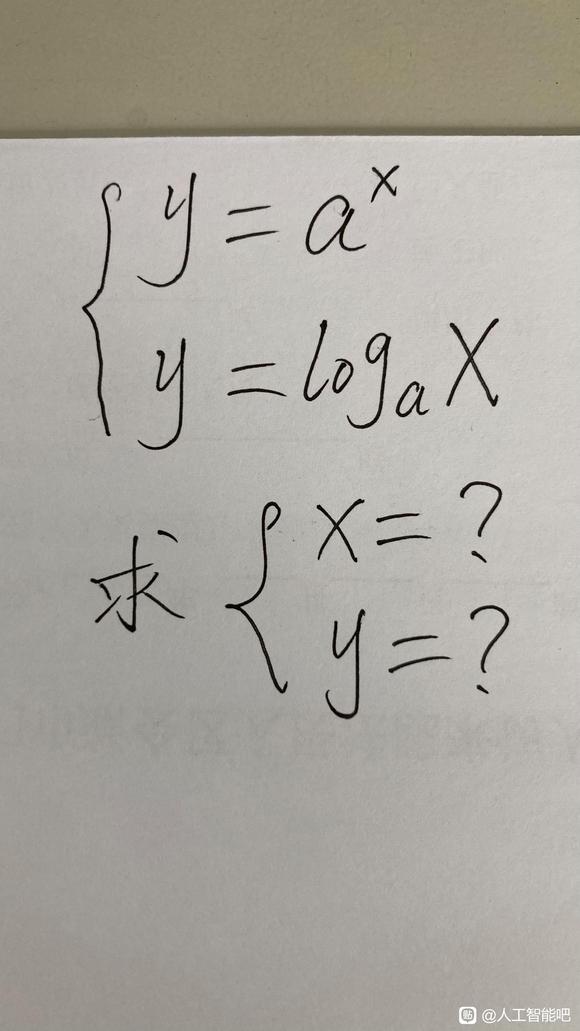 y = a^x
y = log_a X
求 { x = ?
y = ?
贴 @人工智能吧